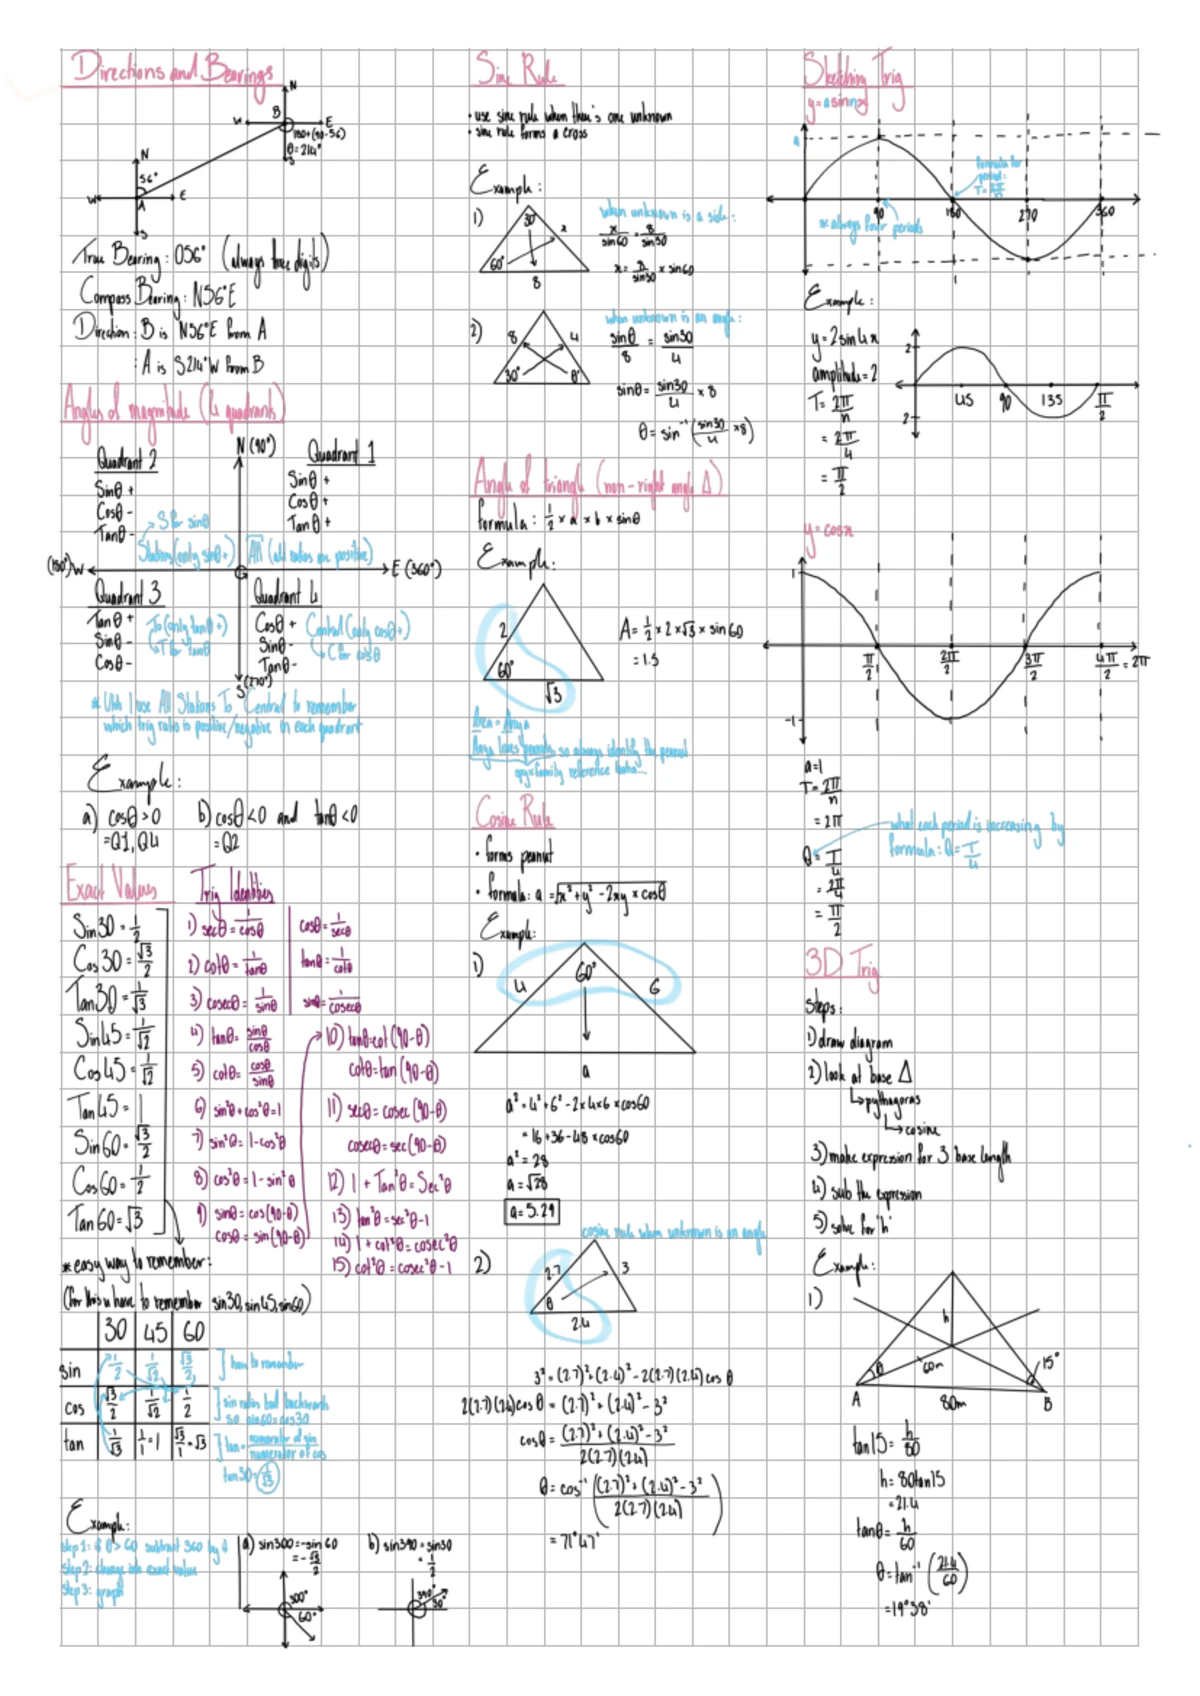 Directions and Bearings
N
B
W
E
180+(90-56)
θ=214°
S
N
56°
W
E
A
S
True Bearing: 056° (always three digits)
Compass Bearing: N56°E
Direction: B is N56°E from A
: A is S214°W from B
Angles of magnitude (4 quadrants)
N (90°)
Quadrant 2
Sinθ +
Cosθ -
Tanθ -
S for sinθ
Stations (only sinθ+)
Quadrant 1
Sinθ +
Cosθ +
Tanθ +
All (all ratios are positive)
(180°)W
E (360°)
Quadrant 3
Tanθ +
Sinθ -
Cosθ -
To (only tanθ+)
T for tanθ
Quadrant 4
Cosθ +
Sinθ -
Tanθ -
Central (only cosθ+)
C for cosθ
S (270°)
I use All Stations To Central to remember
which trig ratio is positive/negative in each quadrant
Example:
a) cosθ>0
=Q1, Q4
b) cosθ<0 and tanθ<0
=Q2
Exact Values
Sin30=1/2
Cos30=√3/2
Tan30=1/√3
Sin45=1/√2
Cos45=1/√2
Tan45=1
Sin60=√3/2
Cos60=1/2
Tan60=√3
Trig Identities
1) secθ=1/cosθ
cosθ=1/secθ
2) cotθ=1/tanθ
tanθ=1/cotθ
3) cosecθ=1/sinθ
sinθ=1/cosecθ
4) tanθ=sinθ/cosθ
5) cotθ=cosθ/sinθ
6) sin²θ+cos²θ=1
7) sin²θ=1-cos²θ
8) cos²θ=1-sin²θ
9) sinθ=cos(90-θ)
cosθ=sin(90-θ)
10) tanθ=cot(90-θ)
cotθ=tan(90-θ)
11) secθ=cosec(90-θ)
cosecθ=sec(90-θ)
12) 1+Tan²θ=Sec²θ
13) tan²θ=sec²θ-1
14) 1+cot²θ=cosec²θ
15) cot²θ=cosec²θ-1
*easy way to remember:
(for this u have to remember sin30, sin45, sin60)
30 45 60
sin 1/2 1/√2 √3/2
have to remember
cos √3/2 1/√2 1/2
sin ratios but backwards
so sin60=cos30
tan 1/√3 1/1=1 √3/1=√3
tan= numerator of sin/numerator of cos
tan30=1/√3
Example:
Step 1: if θ>60 subtract 360 by it
Step 2: change into exact value
Step 3: graph
a) sin300=-sin60
=-√3/2
300°
60°
b) sin390=sin30
=1/2
390°
30°
Sine Rule
• use sine rule when there's one unknown
• sine rule forms a cross
Example:
1)
30°
x
60°
8
when unknown is a side:
x/sin60=8/sin30
x=8/sin30 × sin60
2)
8
4
30°
θ
when unknown is an angle:
sinθ/8 = sin30/4
sinθ= sin30/4 × 8
θ=sin⁻¹(sin30/4 ×8)
Angle of triangle (non-right angle Δ)
formula: 1/2 × a × b × sinθ
Example:
2
60°
√3
A=1/2 × 2 × √3 × sin60
=1.5
Area = Anya
Anya loves peanuts, so always identify the peanut
spy×family reference haha...
Cosine Rule
• forms peanut
• formula: a=√x²+y²-2xy×cosθ
Example:
1)
4
60°
6
a
a²=4²+6²-2×4×6×cos60
=16+36-48×cos60
a²=28
a=√28
a=5.29
cosine rule when unknown is an angle
2)
2.7
3
θ
2.4
3²=(2.7)²+(2.4)²-2(2.7)(2.4)cosθ
2(2.7)(2.4)cosθ=(2.7)²+(2.4)²-3²
cosθ=(2.7)²+(2.4)²-3²/2(2.7)(2.4)
θ=cos⁻¹((2.7)²+(2.4)²-3²/2(2.7)(2.4))
=71°47'
Sketching Trig
y=asinnx
a
formula for
period:
T=2π/n
90
180
270
360
*always four periods
Example:
y=2sin4x
amplitude=2
T=2π/n
=2π/4
=π/2
2
45
90
135
π/2
2
y=cosx
1
π/2
2π/2
3π/2
4π/2=2π
-1
a=1
T=2π/n
=2π
what each period is increasing by
formula: Q=T/4
Q=T/4
=2π/4
=π/2
3D Trig
Steps:
1) draw diagram
2) look at base Δ
pythagoras
cosine
3) make expression for 3 base length
4) sub the expression
5) solve for 'h'
Example:
1)
h
θ
60m
15°
A
80m
B
tan15=h/80
h=80tan15
=21.4
tanθ=h/60
θ=tan⁻¹(21.4/60)
=19°38'